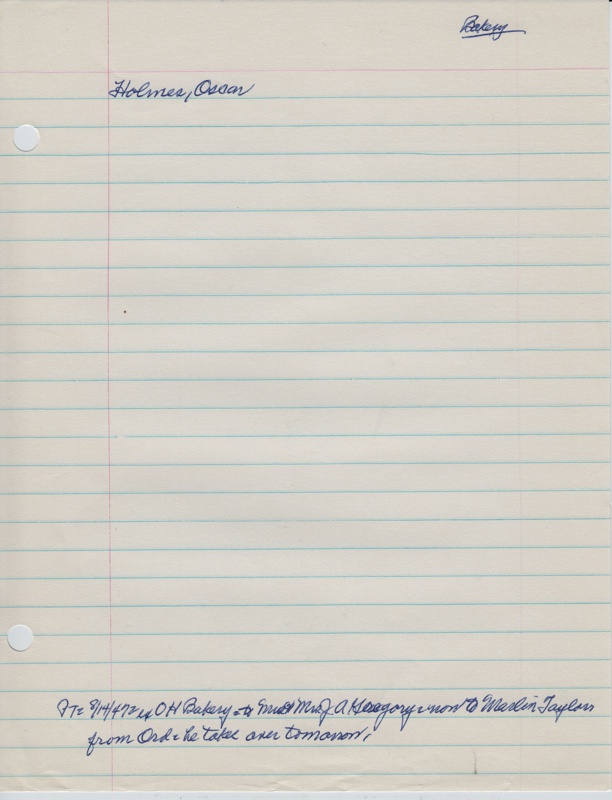 Bakery
Holmes, Oscar
FT= 8/14/47= ex OH Bakery = to Mr & Mrs J. A. Gregory = now to Marlin Taylor
from Ord = he takes over tomorrow.